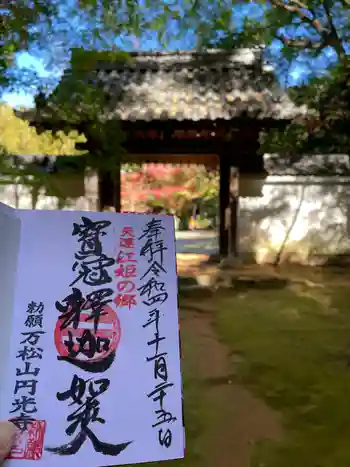 奉拝 令和四年十一月二十五日
江姫の郷
寶冠釋迦如来
勅願 万松山円光寺